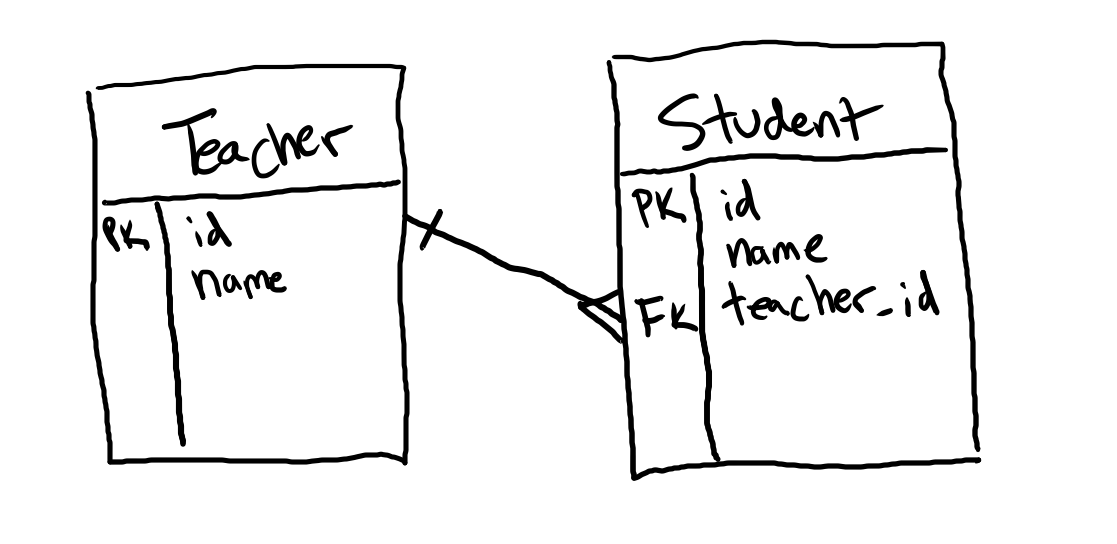 Teacher
PK id
name
Student
PK id
name
FK teacher_id